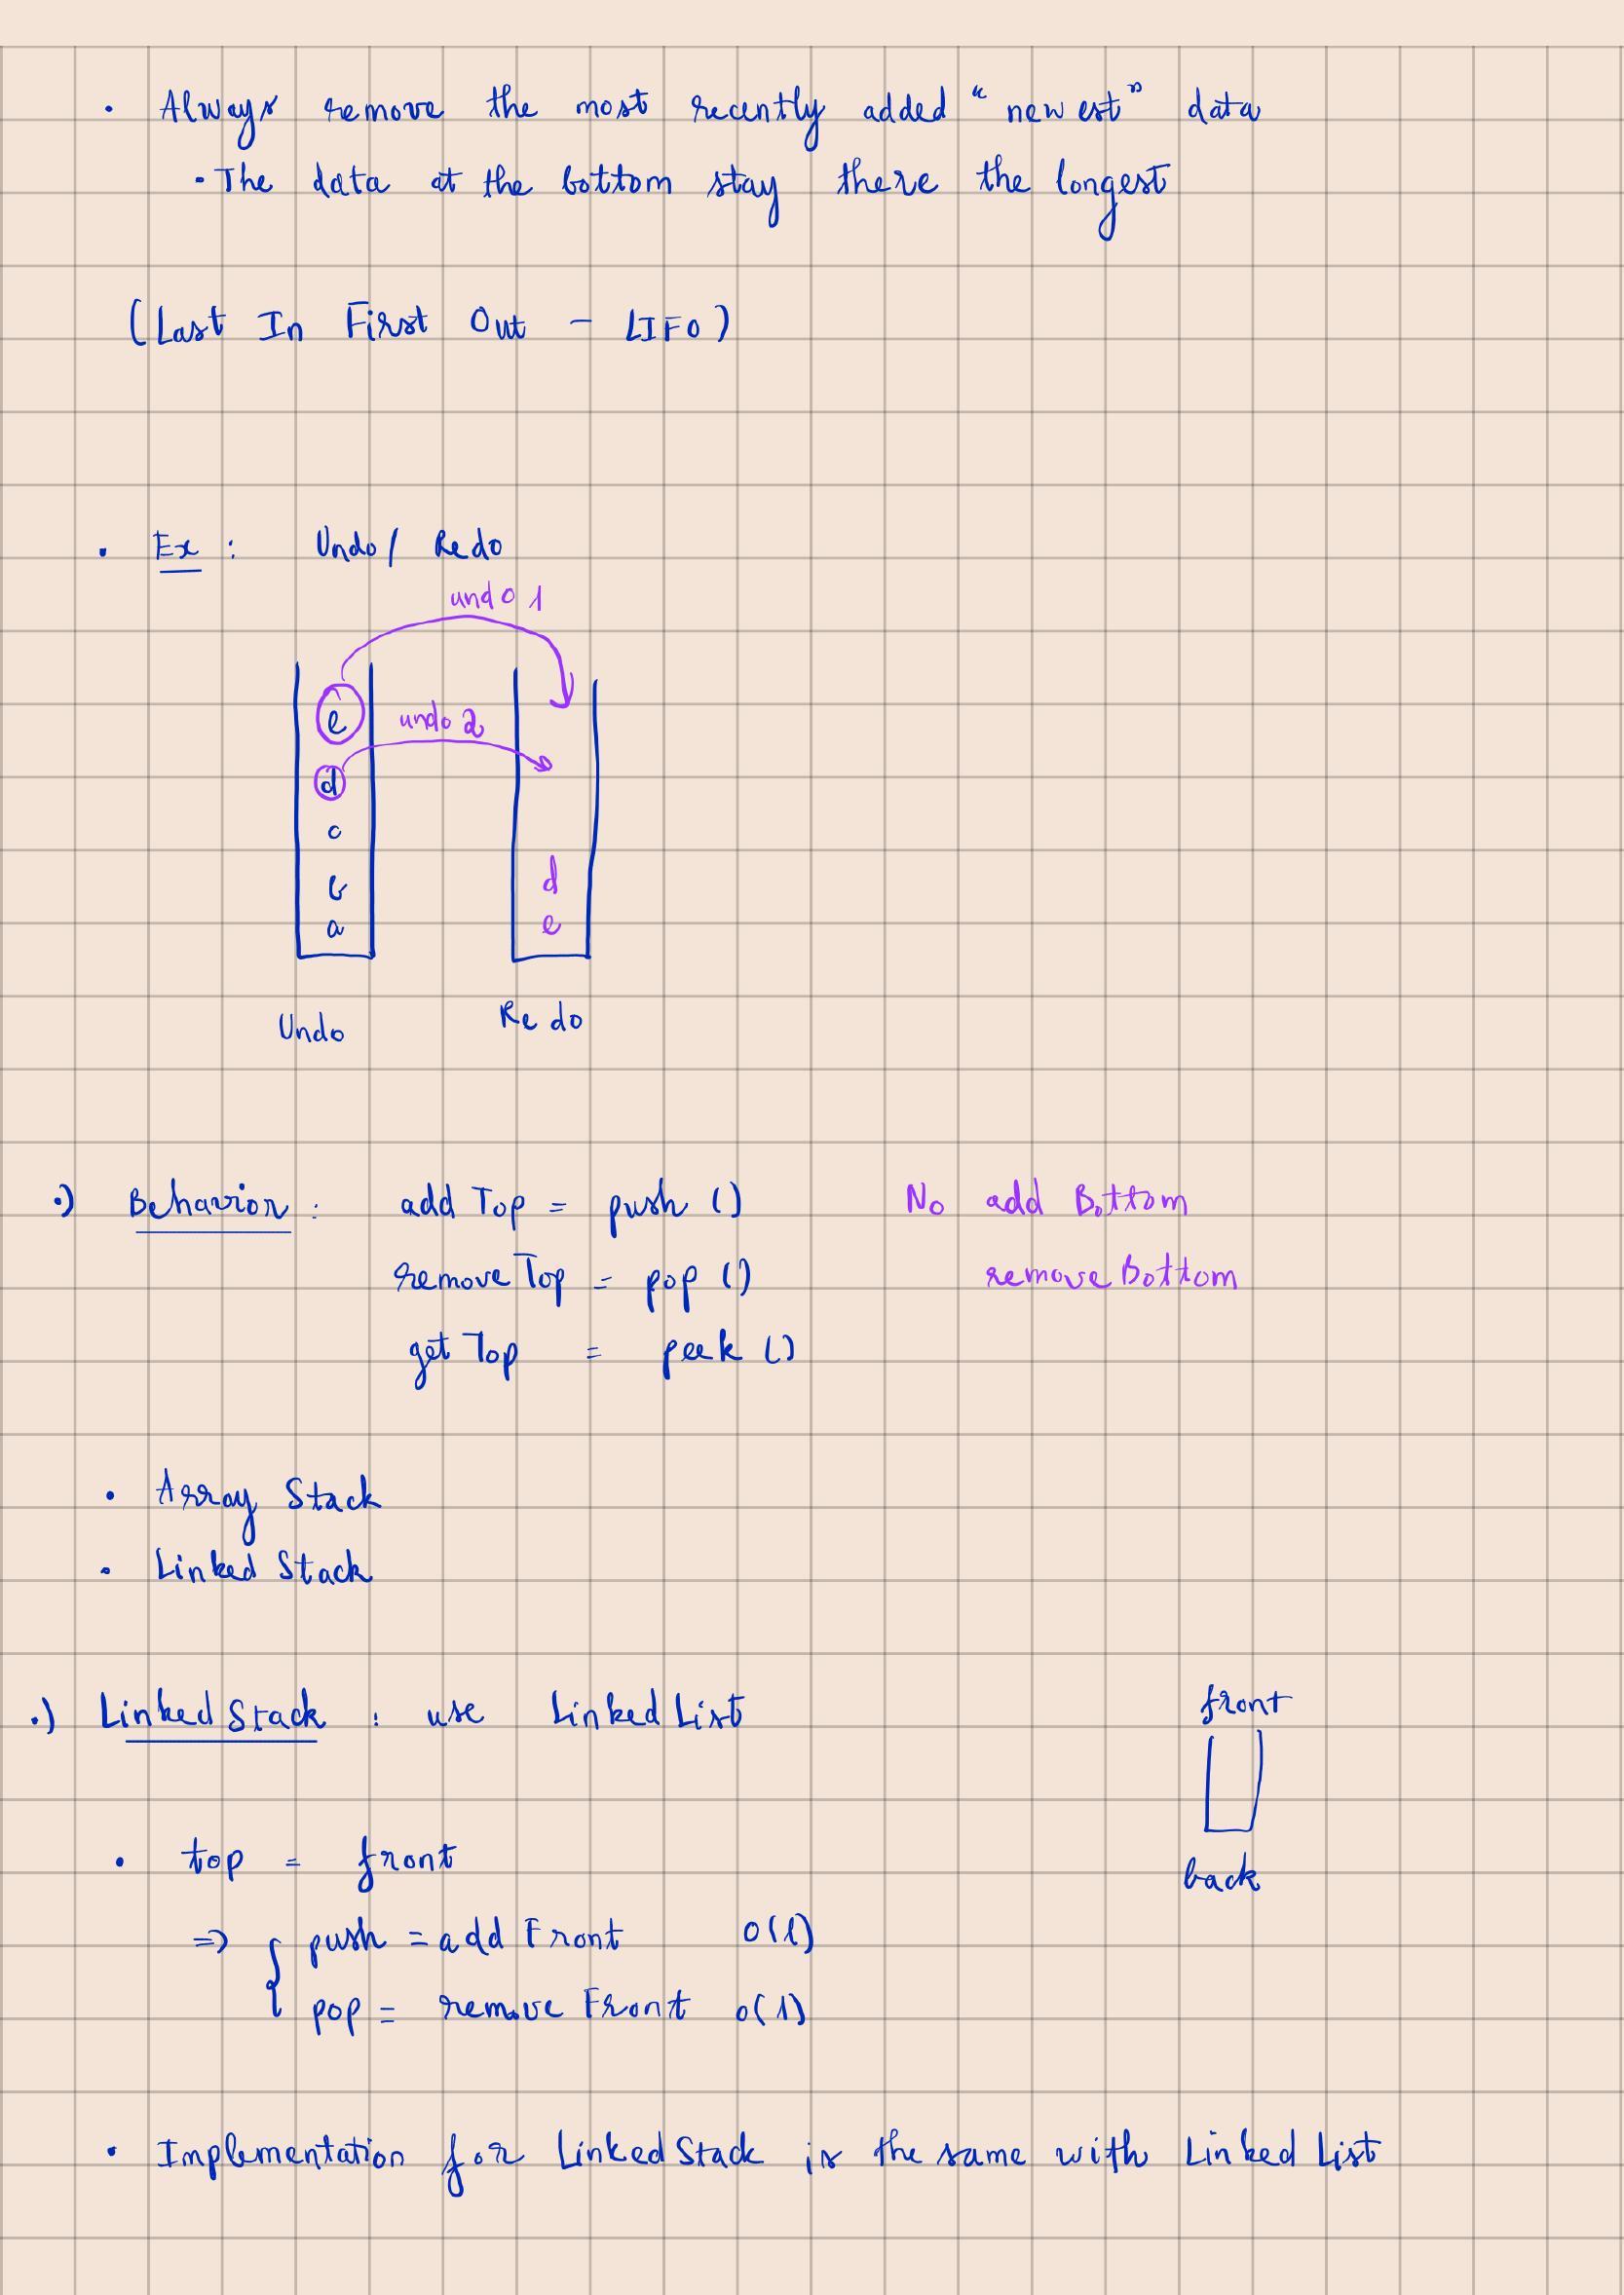 • Always remove the most recently added "newest" data
• The data at the bottom stay there the longest
(Last In First Out - LIFO)
• Ex : Undo / Redo
undo 1
e
undo 2
d
c
b
a
d
e
Undo
Redo
•) Behavior : add Top = push () No add Bottom
remove Top = pop () remove Bottom
get Top = peek ()
• Array Stack
• Linked Stack
•) Linked Stack : use Linked List
front
back
• top = front
⇒ { push = add Front O(1)
pop = remove Front O(1)
• Implementation for Linked Stack is the same with Linked List